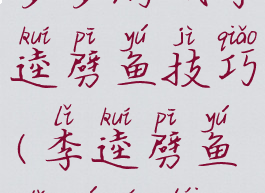 kuí pī yú jì qiǎo
逵劈鱼技巧
lǐ kuí pī yú
(李逵劈鱼